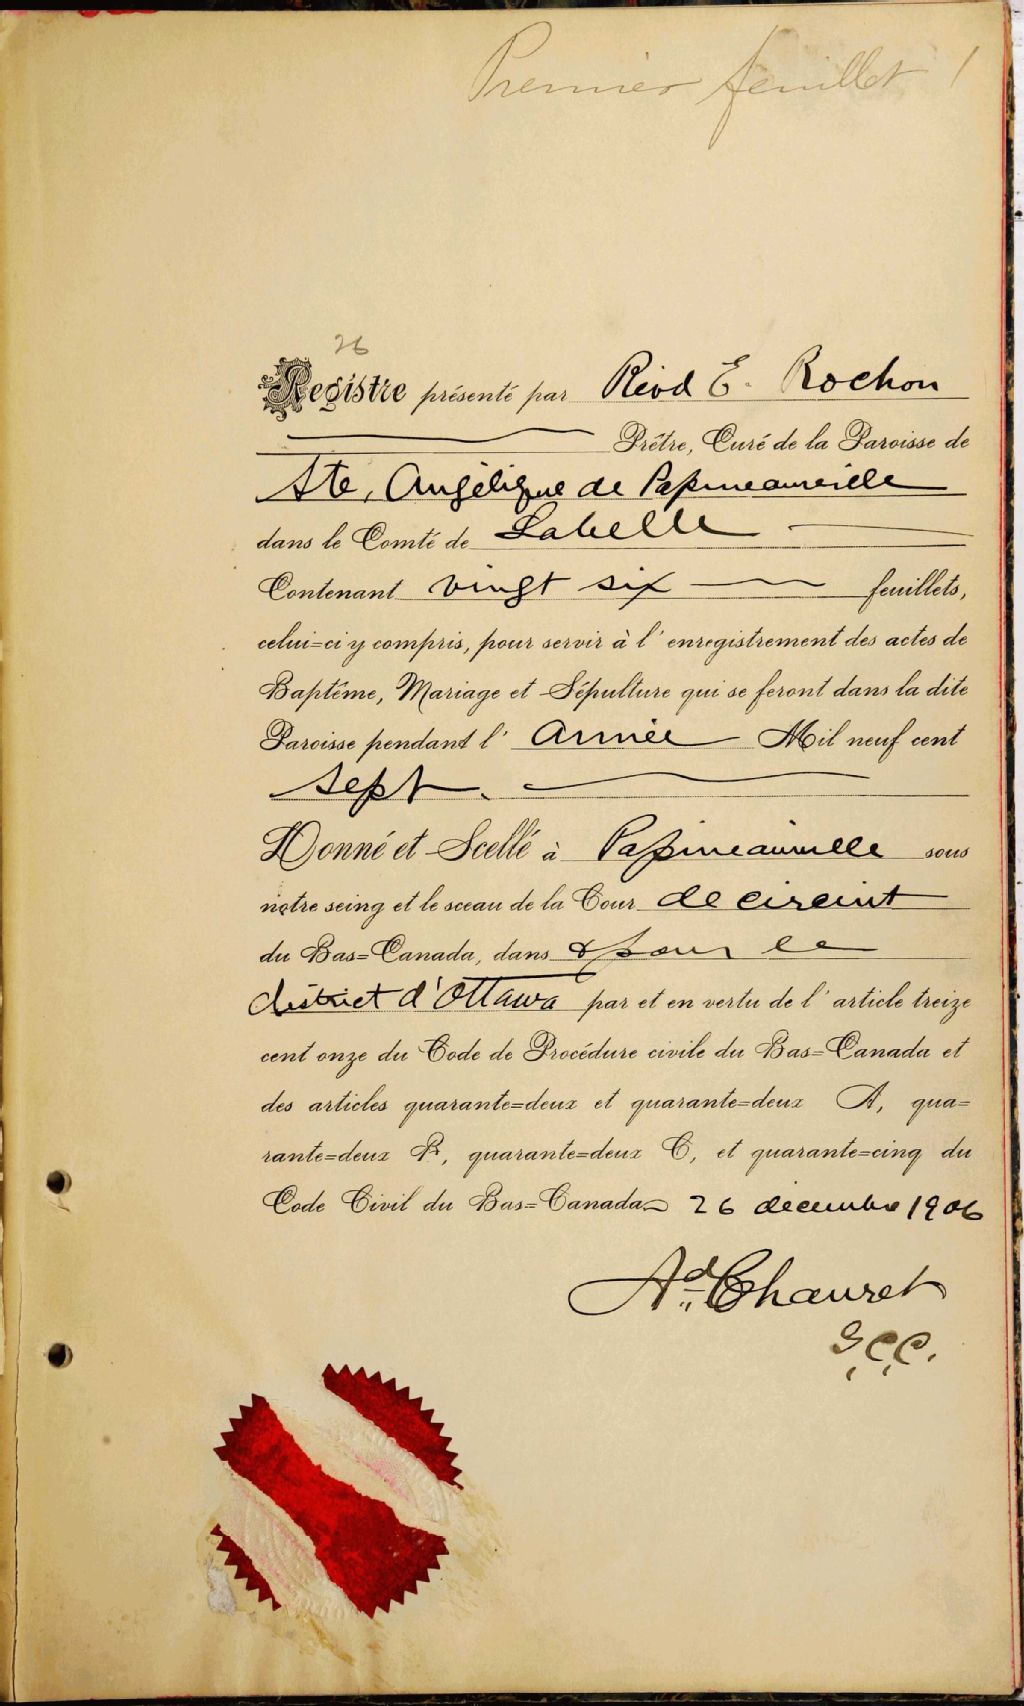 Premier feuillet 1
26
Registre présenté par Révd E. Rochon
Prêtre, Curé de la Paroisse de
Ste. Angélique de Papineauville
dans le Comté de Labelle
Contenant vingt six feuillets,
celui=ci y compris, pour servir à l'enregistrement des actes de
Baptême, Mariage et Sépulture qui se feront dans la dite
Paroisse pendant l' année Mil neuf cent
sept.
Donné et Scellé à Papineauville sous
notre seing et le sceau de la Cour de circuit
du Bas=Canada, dans & pour le
district d'Ottawa par et en vertu de l'article treize
cent onze du Code de Procédure civile du Bas=Canada et
des articles quarante=deux et quarante=deux A, qua=
rante=deux B, quarante=deux C, et quarante=cinq du
Code Civil du Bas=Canada 26 décembre 1906
Ad Chauret
G.C.C.